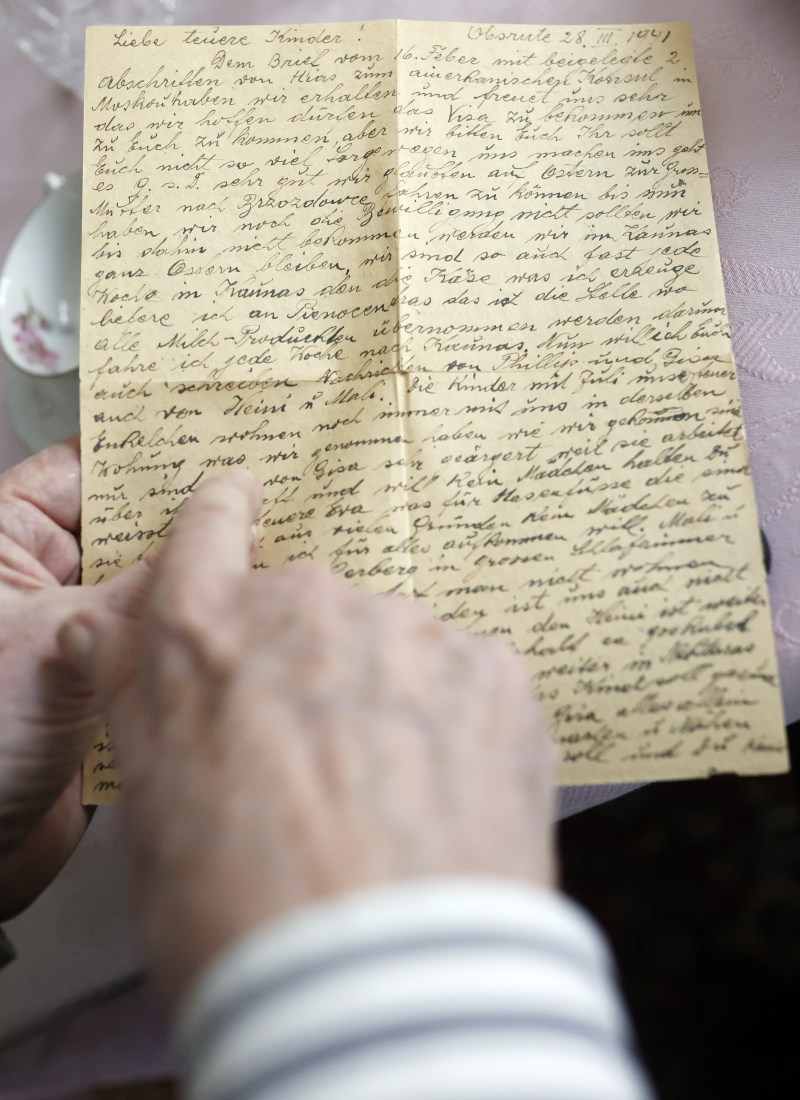 Obsrute 28. III. 1941
Liebe teuere Kinder!
Dem Brief vom 16. Feber mit beigelegte 2
Abschriften von Hias zum amerikanischen Konsul in
Moskau haben wir erhalten und freuet uns sehr
das wir hoffen dürfen das Visa zu bekommen um
zu Euch zu kommen, aber wir bitten Euch Ihr sollt
Euch nicht so viel Sorge wegen uns machen uns geht
es G. s. D. sehr gut wir glaubten am Ostern zur Gross=
Mutter nach Brzozdowce fahren zu können bis nun
haben wir noch die Bewilligung nicht sollten wir
bis dahin nicht bekommen, werden wir im Kaunas
ganz Ostern bleiben, wir sind so auch fast jede
Woche in Kaunas den die Käse was ich erzeuge
liefere ich an Pienocentras das ist die Stelle wo
alle Milch-Produckten übernommen werden darum
fahre ich jede Woche nach Kaunas. Nun will ich Euch
auch schreiben Nachrichten von Phillip und Gisa
auch von Heini u Mali. Die Kinder mit Juli unser teuer
Enkelchen wohnen noch immer mit uns in derselben
Wohnung was wir genommen haben wie wir gekommen sind
nur sind von Gisa sehr geärgert weil sie arbeitet
über und will kein Mädchen halten Du
weisst teuere Eva was für Hasenfüsse die sind
sie aus vielen Gründen kein Mädchen zu
ich für alles aufkommen will. Mali u
in grossen Schlafzimmer
man nicht wohnen
ist uns auch nicht
den Heini ist weiter
weiter in
Kind soll
Gisa alles allein
u Nähen
soll und Du